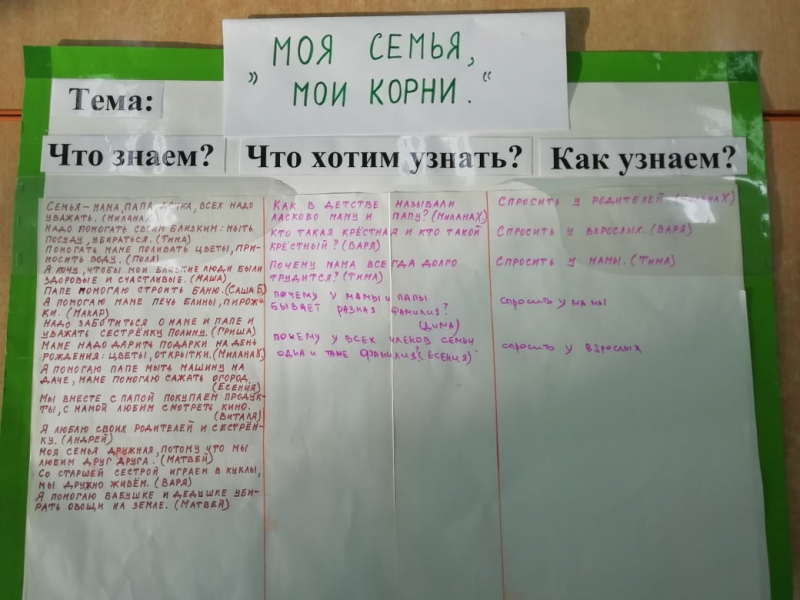 МОЯ СЕМЬЯ,
„ МОИ КОРНИ. “
Тема:
Что знаем?
Что хотим узнать?
Как узнаем?
СЕМЬЯ – МАМА, ПАПА, ДОЧКА, ВСЕХ НАДО
УВАЖАТЬ. (МИЛАНА)
НАДО ПОМОГАТЬ СВОИМ БЛИЗКИМ: МЫТЬ
ПОСУДУ, УБИРАТЬСЯ. (ТИМА)
ПОМОГАТЬ МАМЕ ПОЛИВАТЬ ЦВЕТЫ, ПРИ-
НОСИТЬ ВОДУ. (ПОЛЯ)
Я ХОЧУ, ЧТОБЫ МОИ БЛИЗКИЕ ЛЮДИ БЫЛИ
ЗДОРОВЫЕ И СЧАСТЛИВЫЕ. (МАША)
ПАПЕ ПОМОГАЮ СТРОИТЬ БАНЮ. (САША Б)
Я ПОМОГАЮ МАМЕ ПЕЧЬ БЛИНЫ, ПИРОЖ-
КИ. (МАКАР)
НАДО ЗАБОТИТЬСЯ О МАМЕ И ПАПЕ И
УВАЖАТЬ СЕСТРЁНКУ ПОЛИНУ. (ГРИША)
МАМЕ НАДО ДАРИТЬ ПОДАРКИ НА ДЕНЬ
РОЖДЕНИЯ: ЦВЕТЫ, ОТКРЫТКИ. (МИЛАНА Б)
Я ПОМОГАЮ ПАПЕ МЫТЬ МАШИНУ НА
ДАЧЕ, МАМЕ ПОМОГАЮ САЖАТЬ ОГОРОД.
(ЕСЕНИЯ)
МЫ ВМЕСТЕ С ПАПОЙ ПОКУПАЕМ ПРОДУК-
ТЫ, С МАМОЙ ЛЮБИМ СМОТРЕТЬ КИНО.
(ВИТАЛЯ)
Я ЛЮБЛЮ СВОИХ РОДИТЕЛЕЙ И СЕСТРЁН-
КУ. (АНДРЕЙ)
МОЯ СЕМЬЯ ДРУЖНАЯ, ПОТОМУ ЧТО МЫ
ЛЮБИМ ДРУГ ДРУГА. (МАТВЕЙ)
СО СТАРШЕЙ СЕСТРОЙ ИГРАЕМ В КУКЛЫ,
МЫ ДРУЖНО ЖИВЁМ. (ВАРЯ)
Я ПОМОГАЮ БАБУШКЕ И ДЕДУШКЕ УБИ-
РАТЬ ОВОЩИ НА ЗЕМЛЕ. (МАТВЕЙ)
КАК В ДЕТСТВЕ НАЗЫВАЛИ
ЛАСКОВО МАМУ И ПАПУ? (МИЛАНА Х)
КТО ТАКАЯ КРЁСТНАЯ И КТО ТАКОЙ
КРЁСТНЫЙ? (ВАРЯ)
ПОЧЕМУ МАМА ВСЕГДА ДОЛГО
ТРУДИТСЯ? (ТИМА)
ПОЧЕМУ У МАМЫ И ПАПЫ
БЫВАЕТ РАЗНАЯ ФАМИЛИЯ?
(ДИМА)
ПОЧЕМУ У ВСЕХ ЧЛЕНОВ СЕМЬИ
ОДНА И ТАЖЕ ФАМИЛИЯ? (ЕСЕНИЯ)
СПРОСИТЬ У РОДИТЕЛЕЙ (МИЛАНА Х)
СПРОСИТЬ У ВЗРОСЛЫХ. (ВАРЯ)
СПРОСИТЬ У МАМЫ. (ТИМА)
СПРОСИТЬ У МАМЫ
СПРОСИТЬ У ВЗРОСЛЫХ